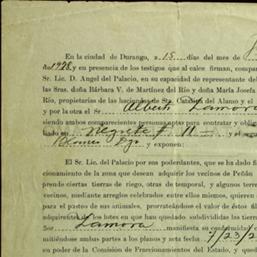 En la ciudad de Durango, a 15 días del mes de
no 1928 y en presencia de los testigos que al calce firman, compa
Sr. Lic. D. Angel del Palacio, en su capacidad de representante del
las Sras. doña Bárbara V. de Martínez del Río y doña María Josefa
Río, propietarias de las haciendas de Sta. Catalina del Alamo y el
y por la otra el Sr Albert Zamora
siendo ambos comparecientes personas para contratar y obliga
y exponen:
El Sr. Lic. del Palacio por sus poderdantes, que se ha dado fi
cionamiento de la zona que desean adquirir los vecinos de Peñón
prende ciertas tierras de riego, otras de temporal, y algunos terre
vecinos, mediante arreglos celebrados entre ellos mismos, quieren
para el pasteo de sus animales, prorrateándose el valor de éstos
adquirentes de los lotes en que han quedado subdivididas las tierras
Sor Zamora manifiesta su conformidad
mitiéndose ambas partes a los planos y acta fecha 7/23/2
en poder de la Comisión de Fraccionamientos del Estado, y en